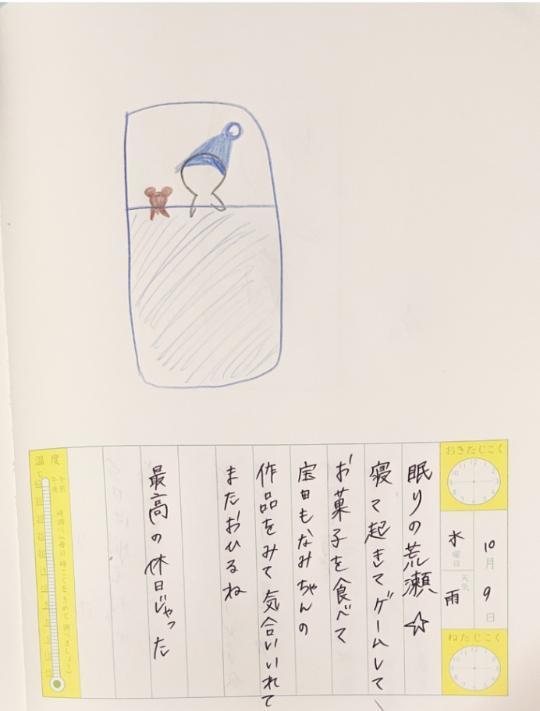 おきたじこく
10月9日
水曜日
天気 雨
ねたじこく
眠りの荒瀬☆
寝て起きてゲームして
お菓子を食べて
宝田もなみちゃんの
作品をみて気合いいれて
またおひるね
最高の休日じゃった
温度